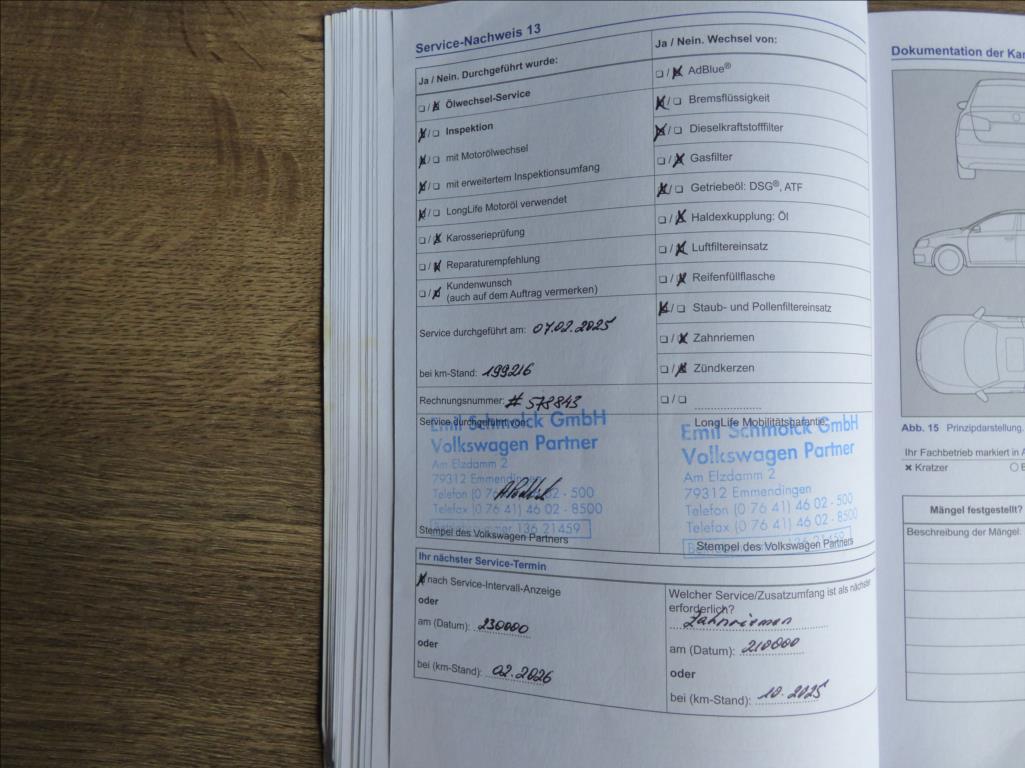 Service-Nachweis 13
Ja / Nein. Durchgeführt wurde:
❏ / ☒ Ölwechsel-Service
☒ / ❏ Inspektion
☒ / ❏ mit Motorölwechsel
☒ / ❏ mit erweitertem Inspektionsumfang
☒ / ❏ LongLife Motoröl verwendet
❏ / ☒ Karosserieprüfung
❏ / ☒ Reparaturempfehlung
❏ / ☒ Kundenwunsch
(auch auf dem Auftrag vermerken)
Service durchgeführt am: 07.02.2025
bei km-Stand: 199216
Rechnungsnummer: # 578843
Service durchgeführt von:
Emil Schmolck GmbH
Volkswagen Partner
Am Elzdamm 2
79312 Emmendingen
Telefon (0 76 41) 46 02 - 500
Telefax (0 76 41) 46 02 - 8500
136 21459
Stempel des Volkswagen Partners
Ja / Nein. Wechsel von:
❏ / ☒ AdBlue®
☒ / ❏ Bremsflüssigkeit
☒ / ❏ Dieselkraftstofffilter
❏ / ☒ Gasfilter
☒ / ❏ Getriebeöl: DSG®, ATF
❏ / ☒ Haldexkupplung: Öl
❏ / ☒ Luftfiltereinsatz
❏ / ☒ Reifenfüllflasche
☒ / ❏ Staub- und Pollenfiltereinsatz
❏ / ☒ Zahnriemen
❏ / ☒ Zündkerzen
❏ / ❏
LongLife Mobilitätsgarantie:
Emil Schmolck GmbH
Volkswagen Partner
Am Elzdamm 2
79312 Emmendingen
Telefon (0 76 41) 46 02 - 500
Telefax (0 76 41) 46 02 - 8500
136 21459
Stempel des Volkswagen Partners
Ihr nächster Service-Termin
☒ nach Service-Intervall-Anzeige
oder
am (Datum): 230000
oder
bei (km-Stand): 02.2026
Welcher Service/Zusatzumfang ist als nächster
erforderlich?
Zahnriemen
am (Datum): 210000
oder
bei (km-Stand): 10.2025
Dokumentation der
Abb. 15 Prinzipdarstellung.
Ihr Fachbetrieb markiert in
✖ Kratzer
Mängel festgestellt?
Beschreibung der Mängel: